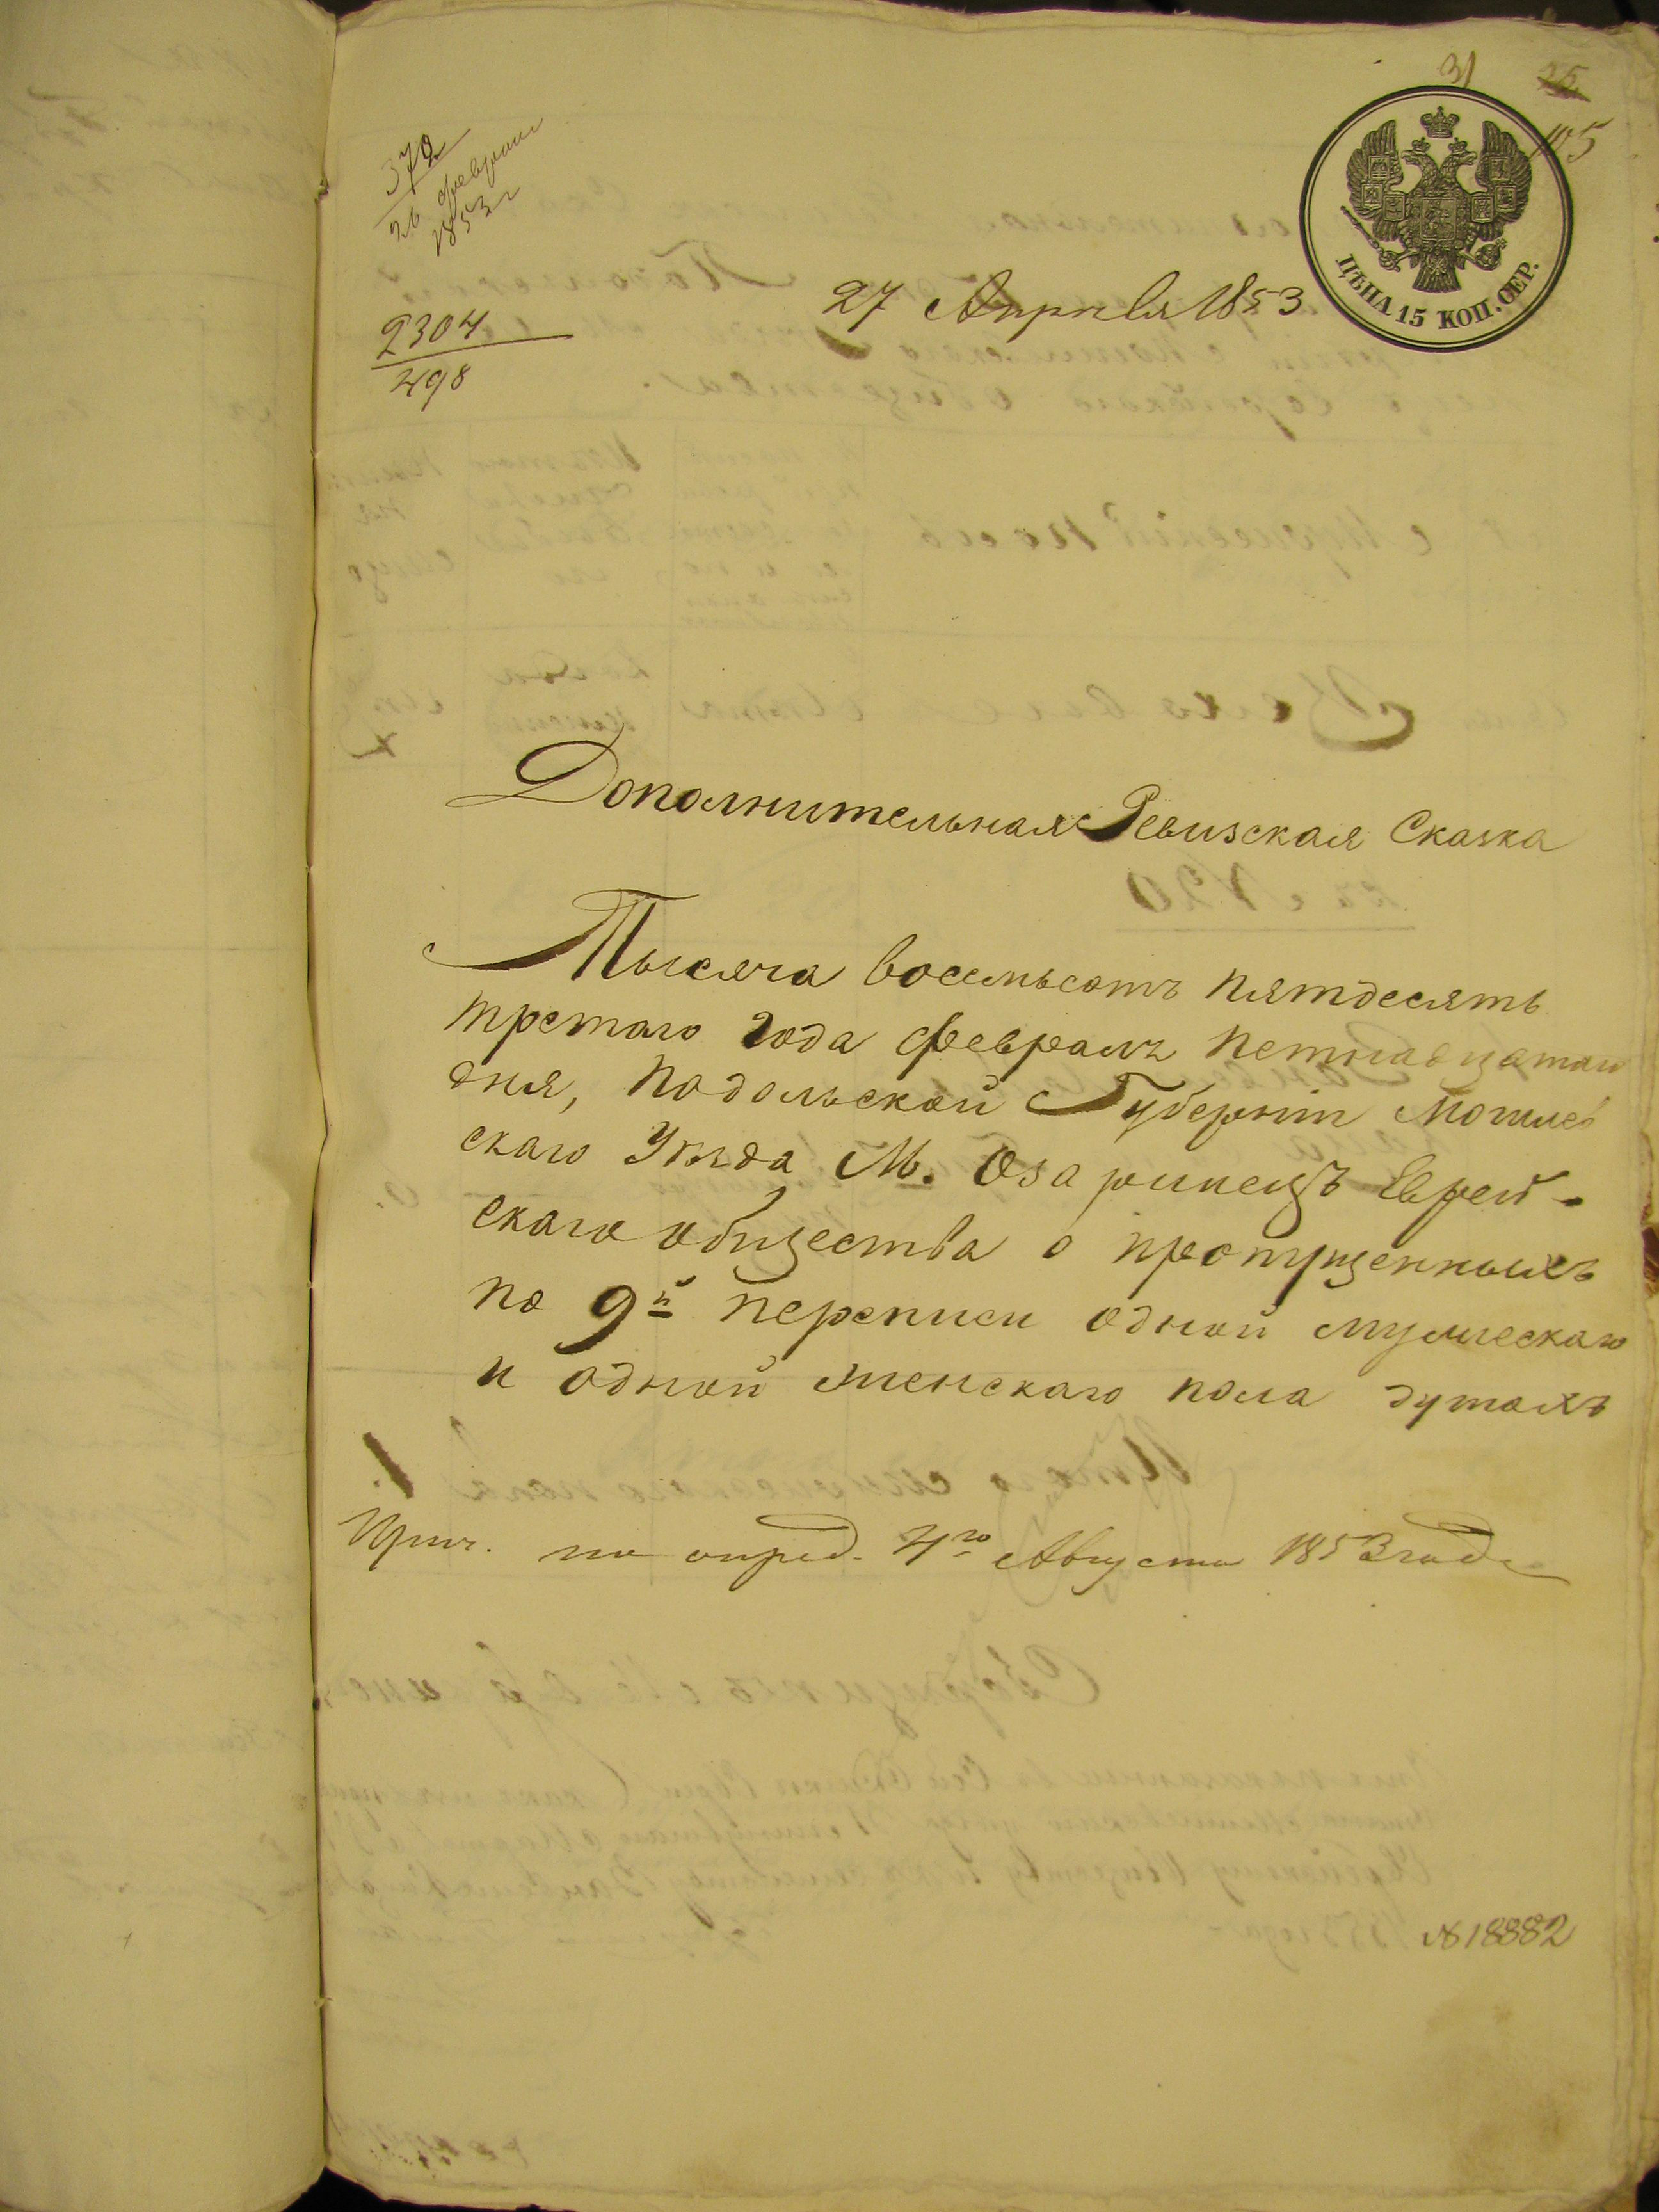 31 25
105
372
26 февраля
1853 г
ЦѢНА 15 КОП. СЕР.
27 Апреля 1853
2304
498
Дополнительная Ревизская Сказка
Тысяча восемьсотъ пятдесять
третаго года февраль петнадцатаго
дня, Подольской Губерніи Могилев
скаго Уѣзда М. Озаринецъ Еврей-
скаго общества о пропущенныхъ
по 9й переписи одной мужескаго
и одной женскаго пола душахъ
Прич. по опред. 4го Августа 1853 года
№ 18882